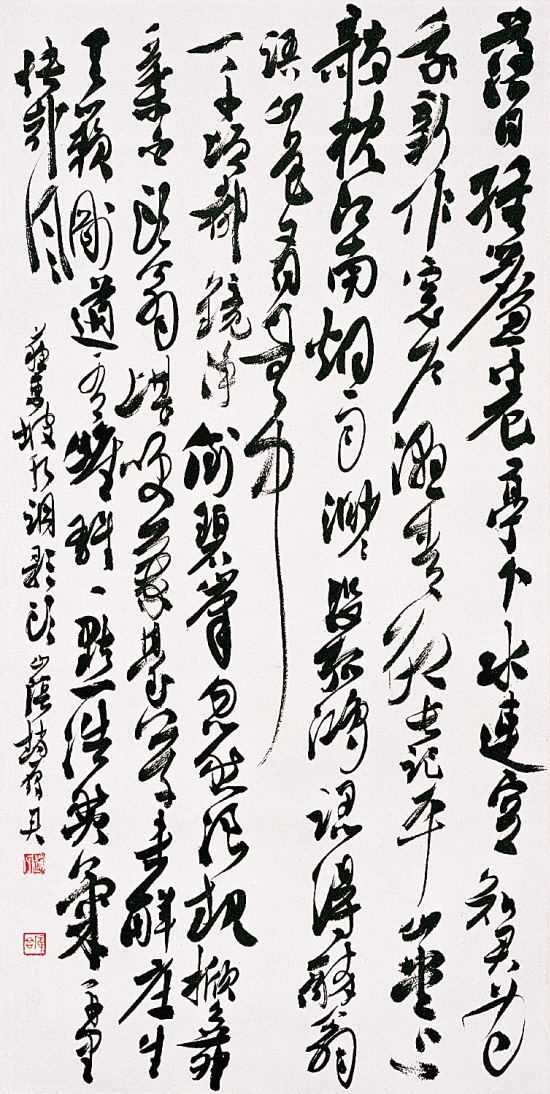 落日繡簾卷亭下水連空知君為
我新作窗户濕青紅長記平山堂上
欹枕江南烟雨渺渺沒孤鴻認得醉翁
語山色有無中
一千頃都鏡淨倒碧峯忽然浪起掀舞
一葉白頭翁堪笑蘭臺公子未解莊生
天籟剛道有雌雄一點浩然氣千里
快哉風
蘇東坡水調歌頭山陰趙